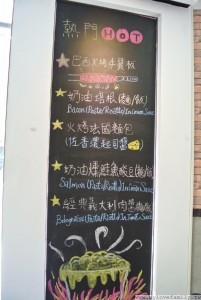 熱門 HOT
巴西火烤牛質板
奶油培根(麵/飯)
Bacon (Pasta/Risotto) In Cream Sauce
火烤法國麵包
(佐香濃起司醬)
奶油燻鮭魚豌豆(麵/飯)
Salmon (Pasta/Risotto) In Cream Sauce
經典義大利肉醬(麵/飯)
Bolognaise (Pasta/Risotto) In Tomato Sauce